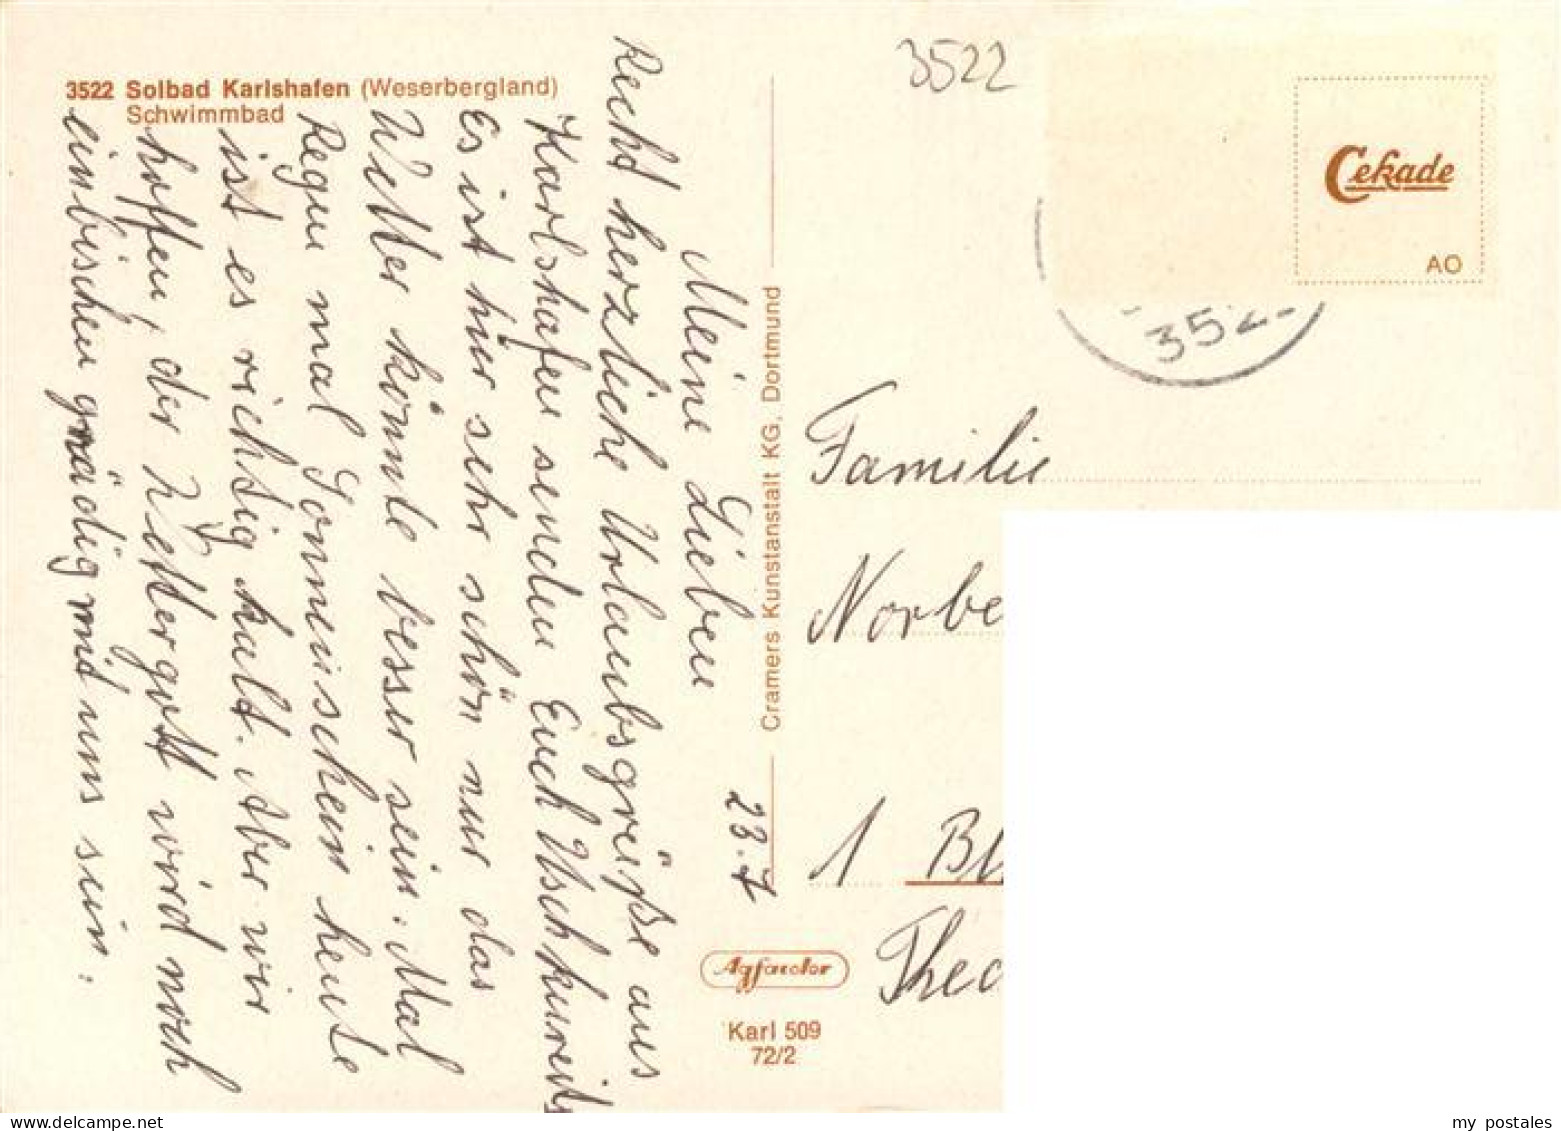 3522 Solbad Karlshafen (Weserbergland)
Schwimmbad
3522
Cekade
AO
352
Meine Lieben
Recht herzliche Urlaubsgrüße aus
Karlshafen senden Euch
Es ist hier sehr schön nur das
Wetter könnte besser sein. Mal
Regen mal Sonnenschein heute
ist es richtig kalt. Aber wir
hoffen, der Wettergott wird noch
einbischen gnädig mit uns sein.
23.7
Cramers Kunstanstalt KG, Dortmund
Familie
Norbe
1 Bl
Theo
Agfacolor
Karl 509
72/2
my postales